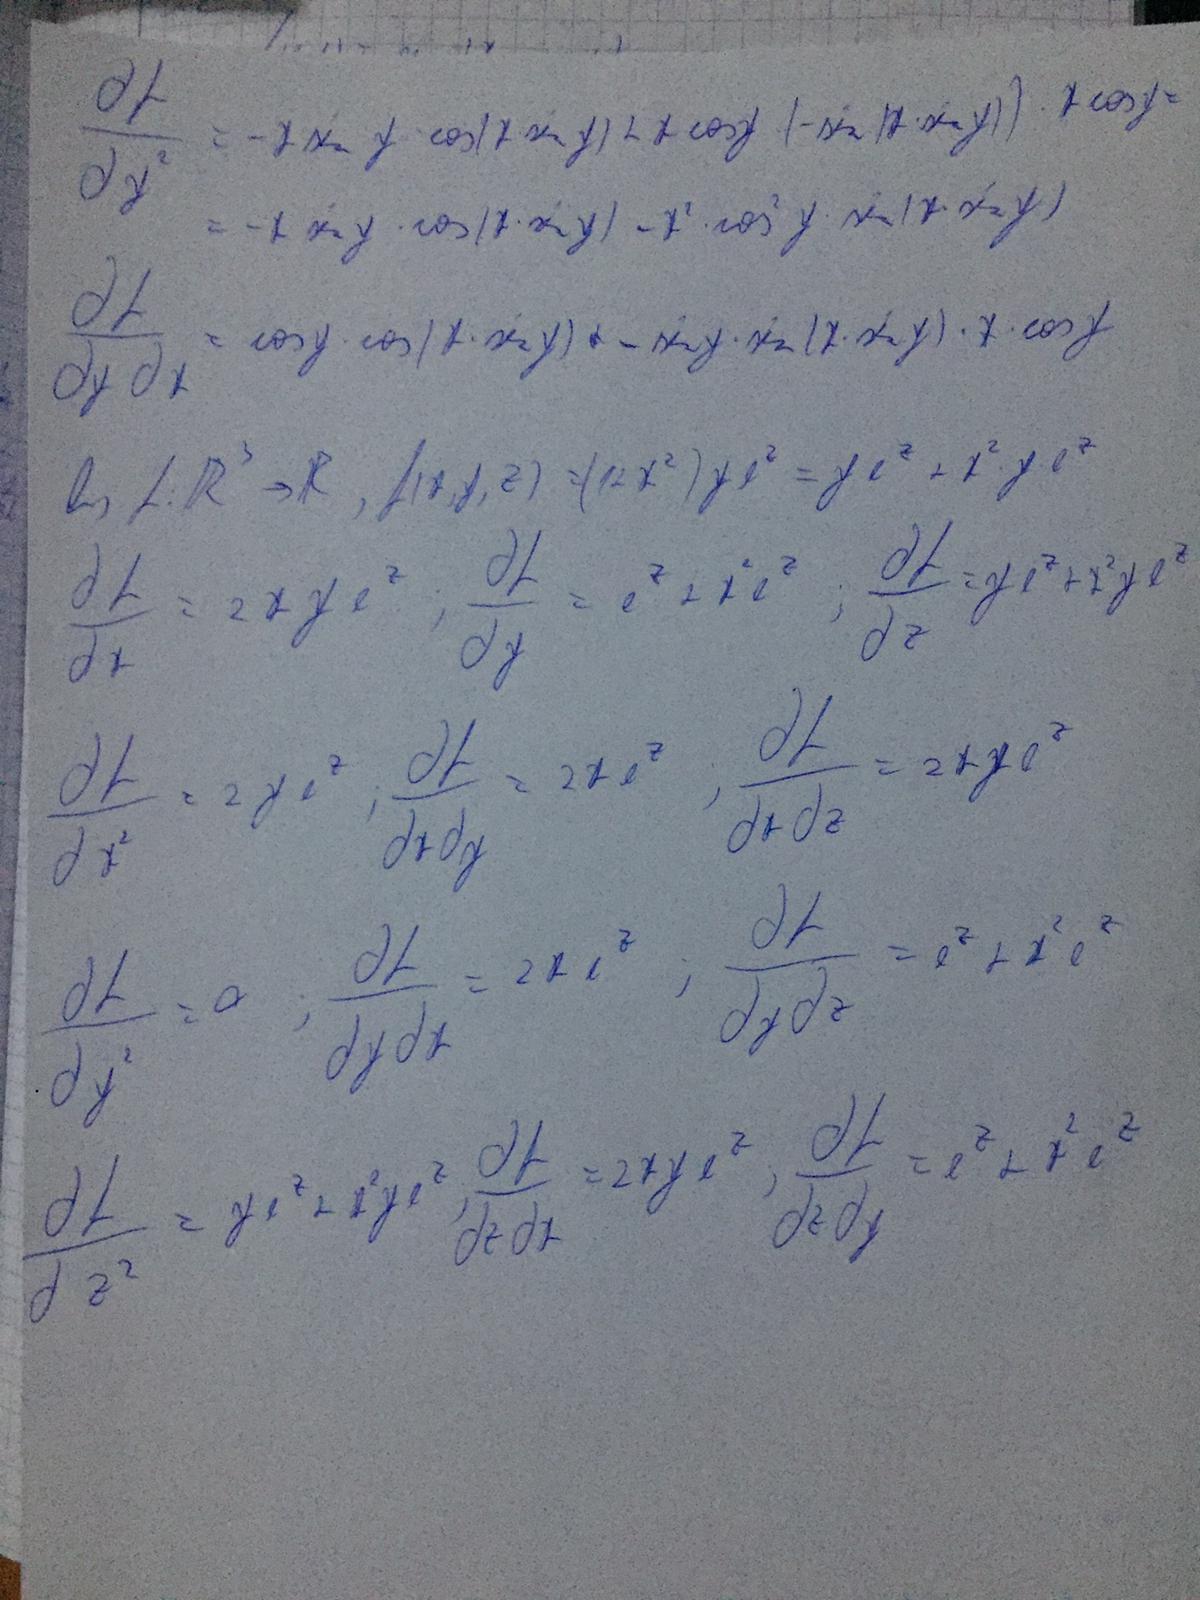 ∂f/∂y² = -x sin y · cos(x·sin y) + x cos y (-sin(x·sin y)) · x cos y =
= -x sin y · cos(x·sin y) - x² · cos² y · sin(x·sin y)
∂f/∂y∂x = cos y · cos(x·sin y) + - sin y · sin(x·sin y) · x · cos y
f: ℝ³ → ℝ, f(x,y,z) = (1+x²) y e^z = y e^z + x² · y · e^z
∂f/∂x = 2xy e^z ; ∂f/∂y = e^z + x² e^z ; ∂f/∂z = y e^z + x² y e^z
∂f/∂x² = 2y e^z ; ∂f/∂x∂y = 2x e^z ; ∂f/∂x∂z = 2xy e^z
∂f/∂y² = 0 ; ∂f/∂y∂x = 2x e^z ; ∂f/∂y∂z = e^z + x² e^z
∂f/∂z² = y e^z + x² y e^z ; ∂f/∂z∂x = 2xy e^z ; ∂f/∂z∂y = e^z + x² e^z